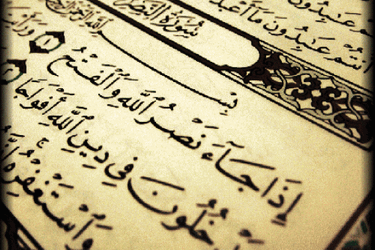 عَٰبِدُونَ مَآ
أَنتُمْ عَٰبِدُونَ
سُورَةُ النَّصْرِ
بِسْ
إِذَا جَآءَ نَصْرُ ٱللَّهِ وَٱلْفَتْحُ ١
خُلُونَ فِى دِينِ ٱللَّهِ أَفْوَاجًا ٢
وَٱسْتَغْفِرْهُ